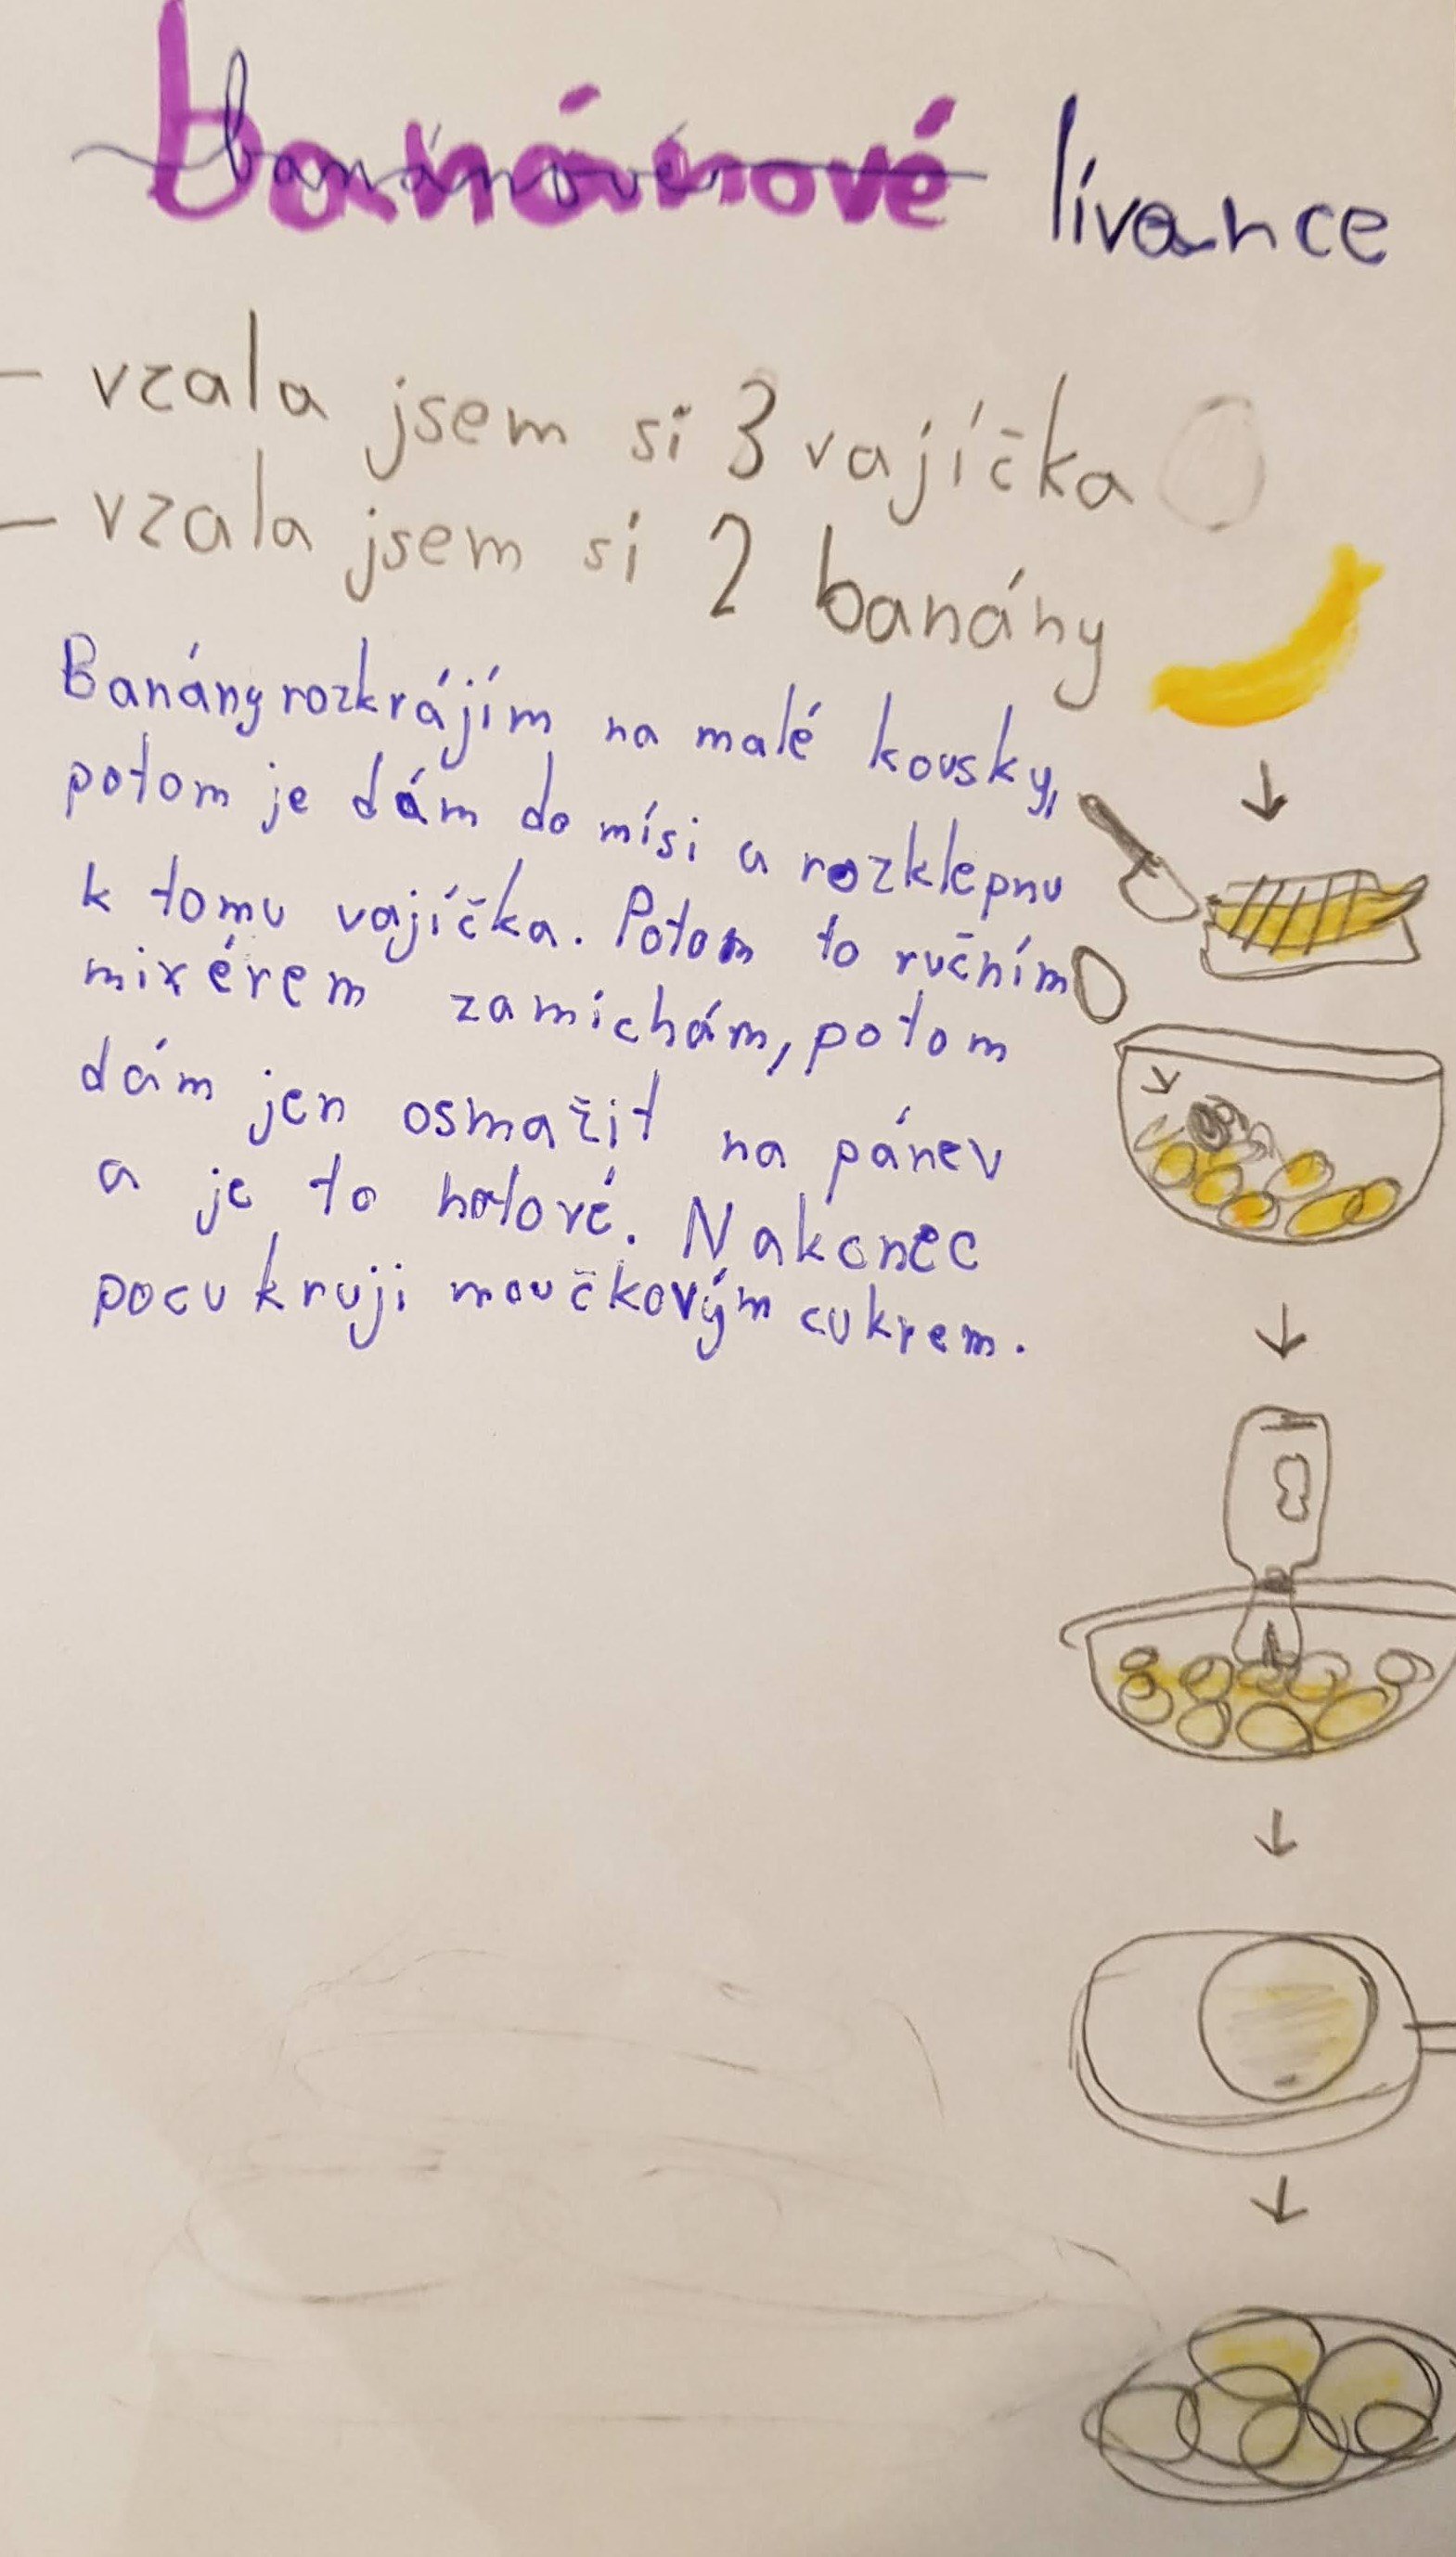 banánové lívance
- vzala jsem si 3 vajíčka
- vzala jsem si 2 banány
Banány rozkrájím na malé kousky,
potom je dám do mísi a rozklepnu
k tomu vajíčka. Potom to ručním
mixérem zamichám, potom
dám jen osmažit na pánev
a je to hotové. Nakonec
pocukruji moučkovým cukrem.